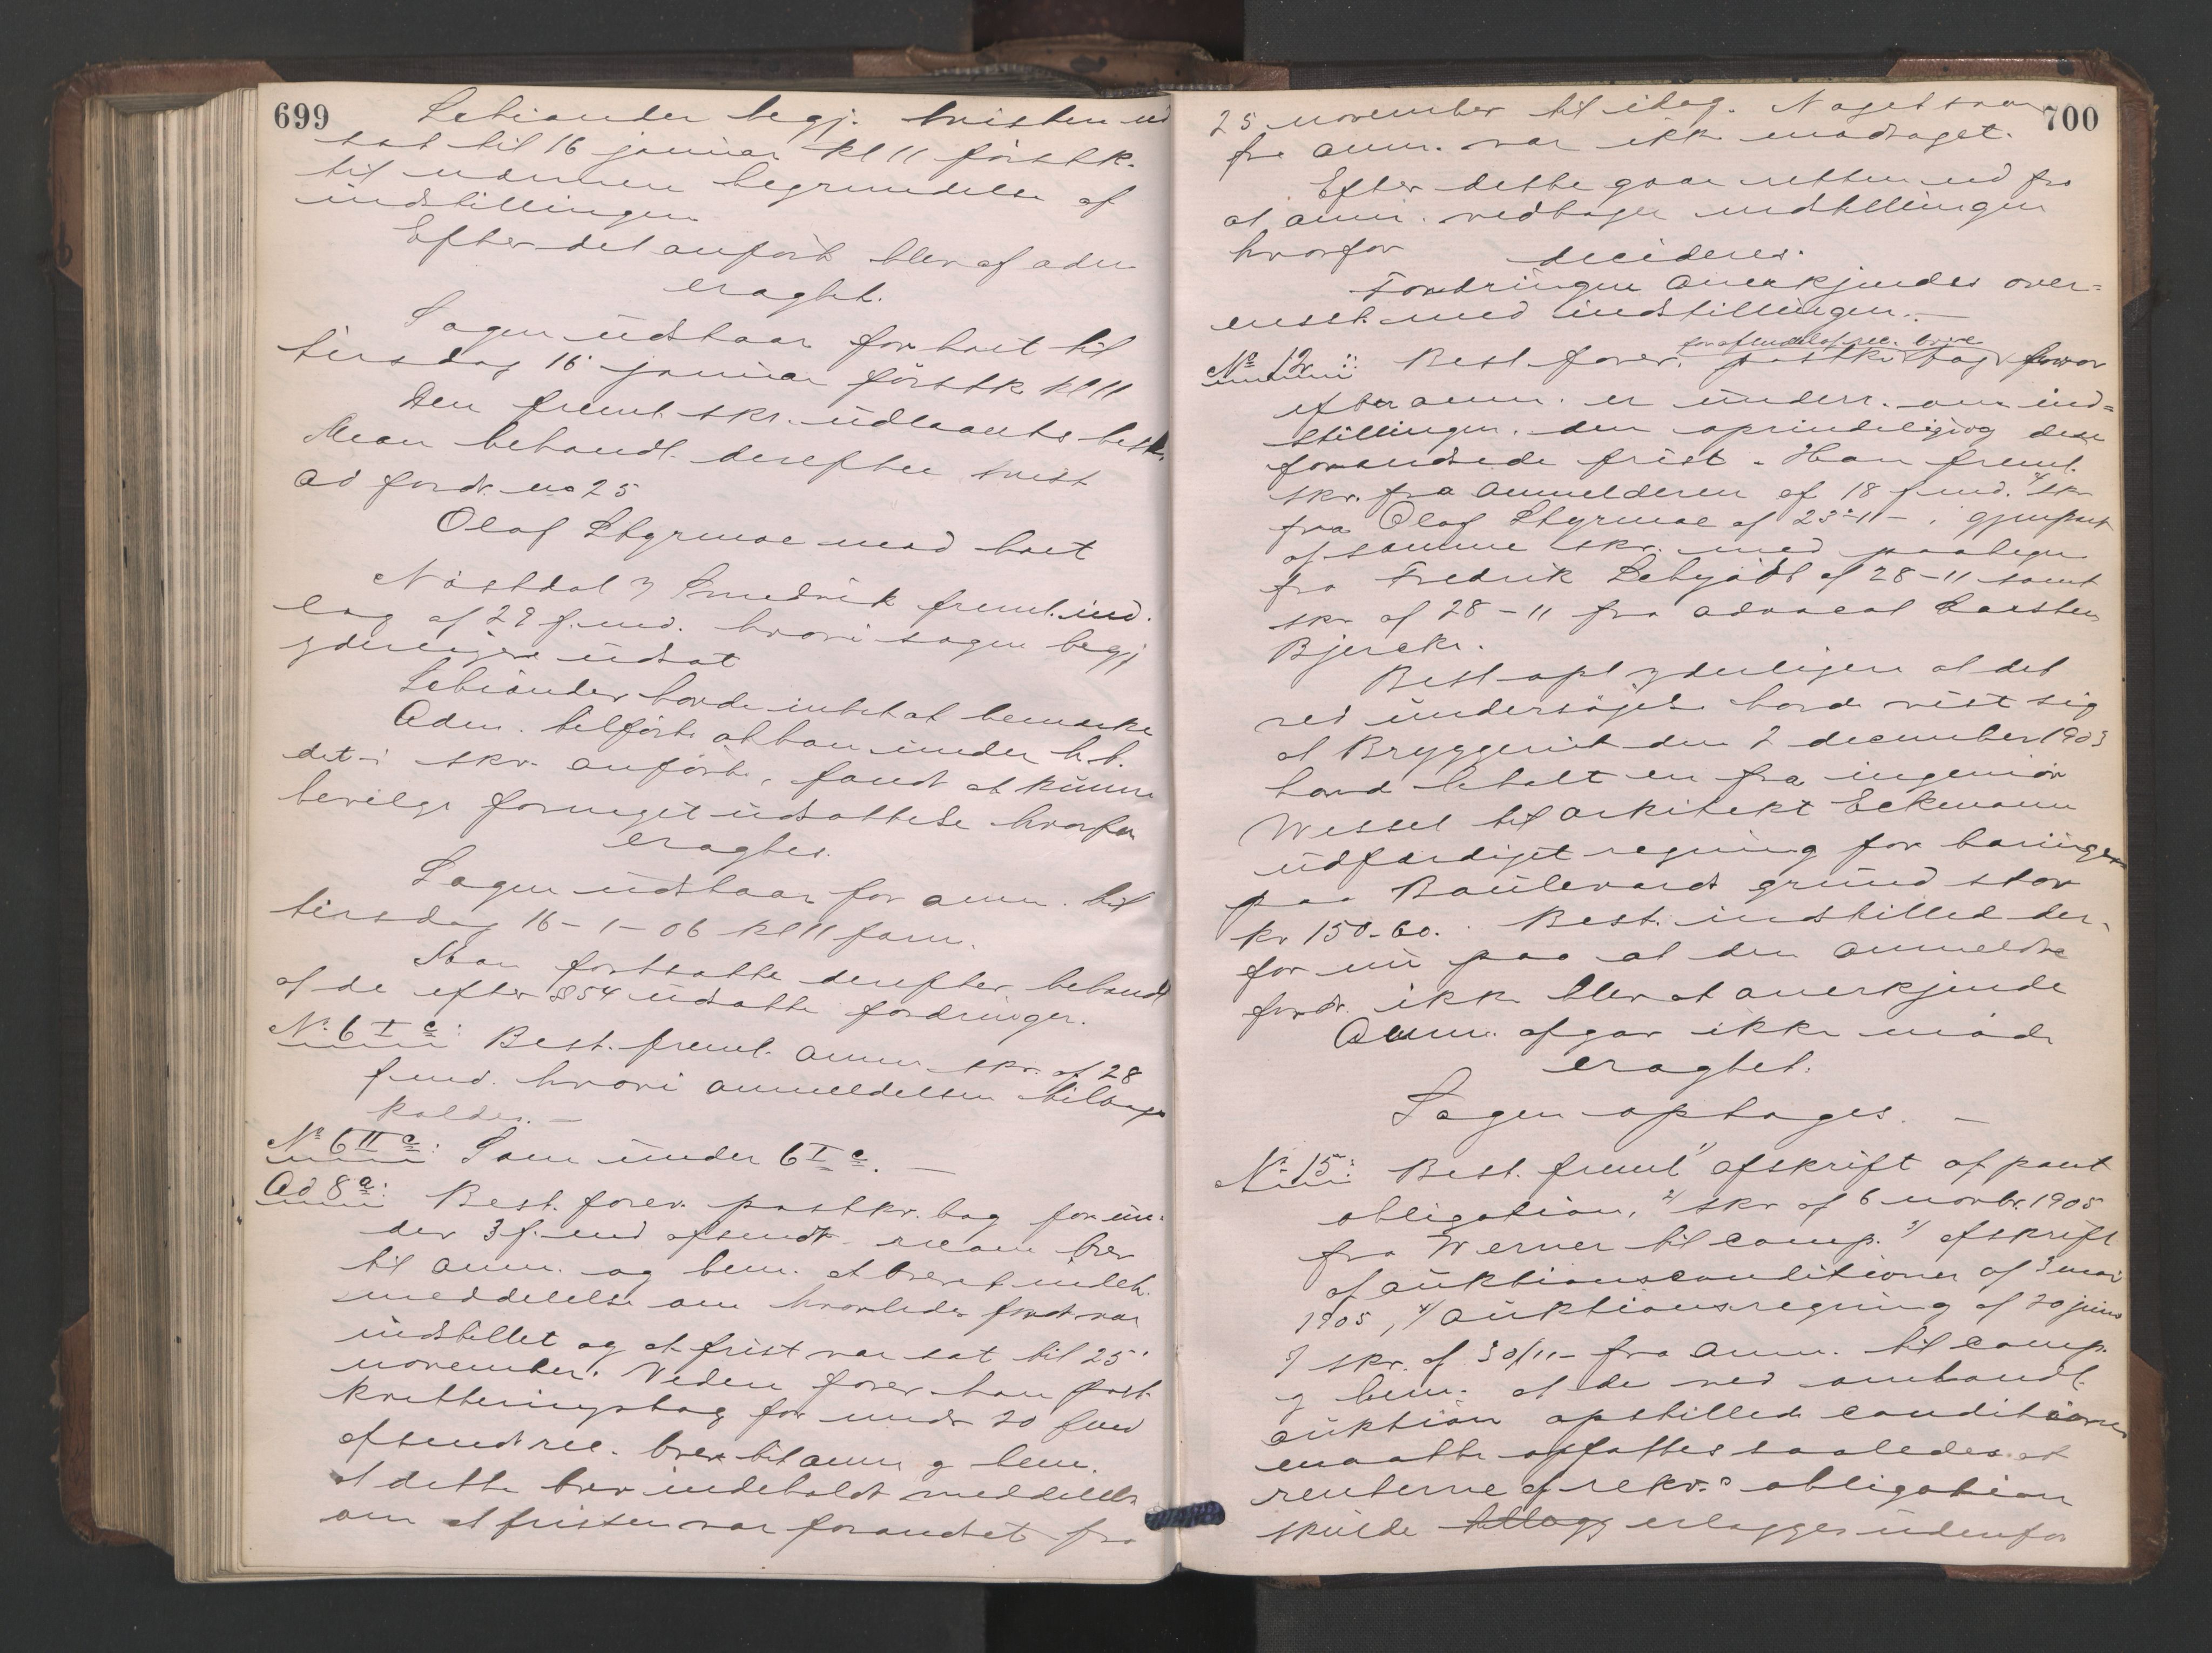 699
Schiander begj. tvisten ud
sat til 16 januar kl 11 førstk.
til nærmere begrundelse af
indstillingen
Efter det anførte blev af adm
eragtet.
Sagen udstaar for tvist til
tirsdag 16 januar førstk kl 11
Den freml. skr. udlaantes best.
Man behandl. derefter tvist
ad fordr. no 25
Olaf Styrmoe mod boet
Nøstdal & freml. ind.
læg af 29 f. md. hvori sagen begj
yderligere udsat
Schiander havde intet at bemærke
Adm. tilførte at han under h. t.
det i skr. anførte, fandt at kunne
bevilge forneget udsættelse hvorfor
eragtes.
Sagen udstaar for anm. til
tirsdag 16-1-06 kl 11 form.
Man fortsatte derefter behandl
af de efter § 54 udsatte fordringer.
No 6 I c: Best. freml. anm. skr. af 28
f md. hvori anmeldelsen tilbage
kaldes. —
No 6 II c: Som under 6 I c. —
Ad 8 a: Best. forev. postkv. bog for un-
der 3 f. md afsendt recom brev
til anm. og bem. at brevet indeh.
meddelelse om hvorledes fordr var
indstillet og at frist var sat til 25'
november. Videre forev han post
kvitteringsbog for under 20 f md
afsendt rec. brev til anm & bem.
at dette brev indeholdt meddelelse
om at fristen var forandret fra
700
25 november til idag. Noget svar
fra anm. var ikke modtaget.
Efter dette gaar retten ud fra
at anm. vedtager indstillingen
hvorfor decideres.
Fordringen anerkjendes over-
ensst. med indstillingen. —
for afsendelse af rec. brev
No 12: Best. forev. postkv. bog hvor
efter anm. er underr. om ind-
stillingen, den oprindelig og den
forandrede frist. Han freml.
skr. fra anmelderen af 18 f md. skr
fra Olaf Styrmoe af 23-11-, gjenpart
af samme skr. med paategn.
fra Fredrik af 28-11 samt
skr af 28-11 fra advocat Carsten
Bjercke.
Best opl yderligere at det
ved undersøgelse havde vist sig
at Bryggeriet den 2 december 1903
havde betalt en fra ingeniør
Wessel til arkitekt Eckmann
udfærdiget regning for boringer
paa Boulevards grund stor
kr 150-60. Best. indstilled der-
for nu paa at den anmeldte
fordr. ikke blev at anerkjende
Anm. afgav ikke møde
eragtet.
Sagen optages. —
No 15: Best. freml 1) afskrift af pant
obligation, 2/ skr af 6 novbr. 1905
fra Werner til comp. 3/ afskrift
af auktionsconditioner af 3 mai
1905, 4/ auktionsregning af 20 juni
5/ skr. af 30/11- fra anm. til comp.
& bem. at de ved omhandl.
auktion opstillede conditioner
maatte opfattes saaledes at
renterne af rekv.s obligation
skulde erlægges udenfor